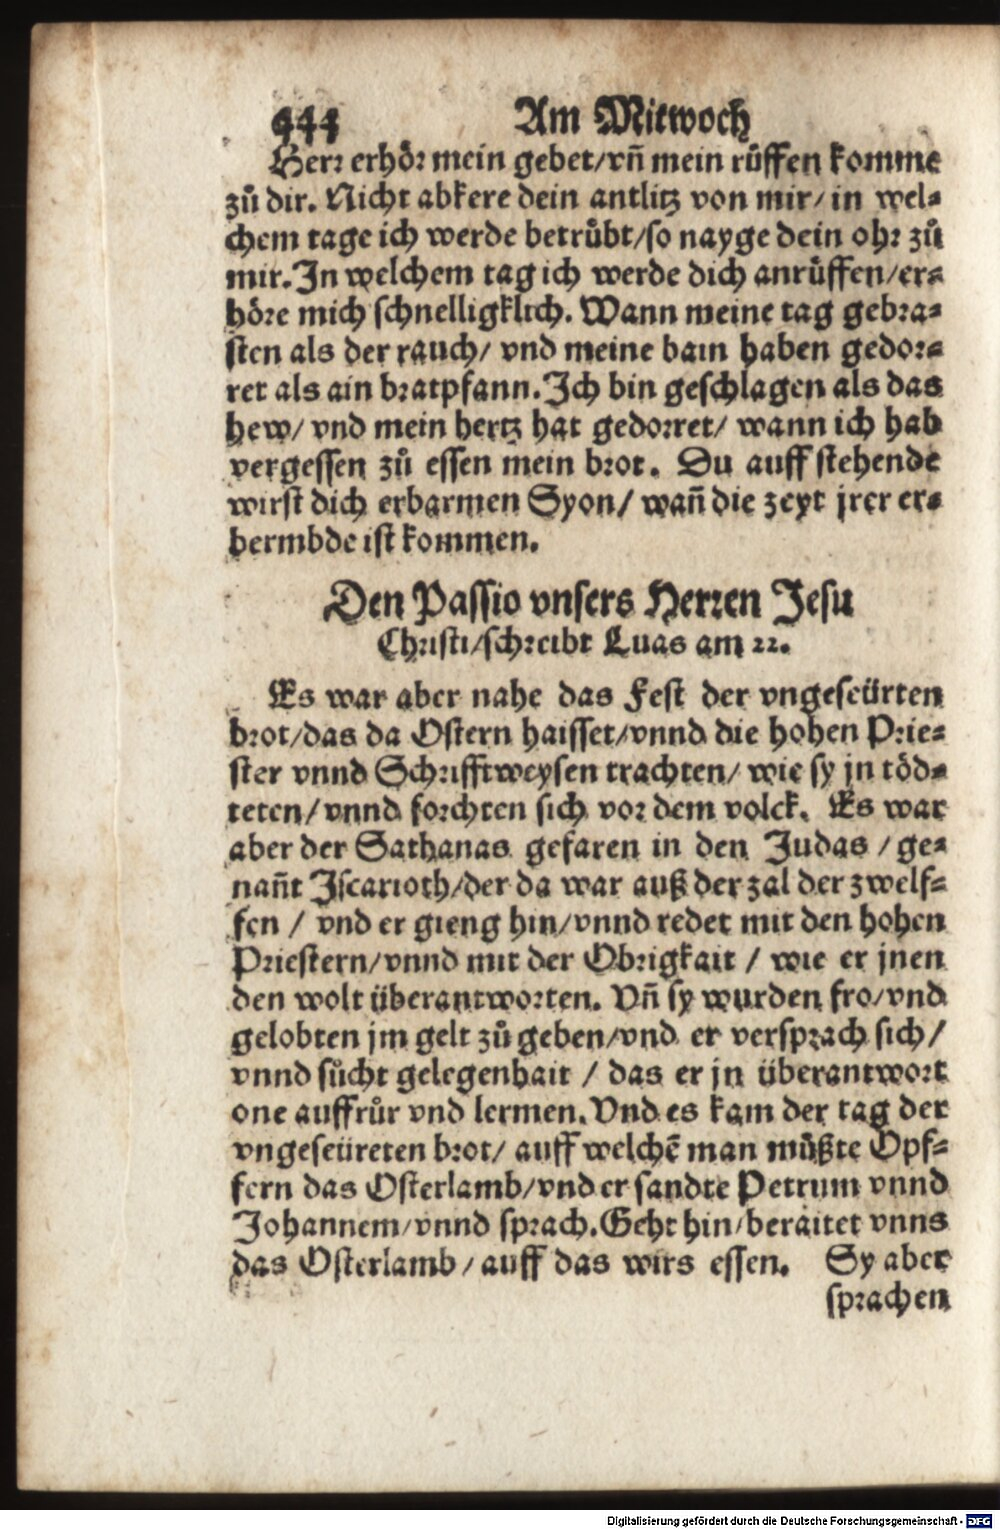 444 Am Mitwoch
Herr erhör mein gebet/vñ mein rüffen komme
zů dir. Nicht abkere dein antlitz von mir/in wel⸗
chem tage ich werde betrübt/so nayge dein ohr zů
mir. In welchem tag ich werde dich anrüffen/er⸗
höre mich schnelligklich. Wann meine tag gebra⸗
sten als der rauch/ vnd meine bain haben gedor⸗
ret als ain bratpfann. Ich bin geschlagen als das
hew/ vnd mein hertz hat gedorret/ wann ich hab
vergessen zů essen mein brot. Du auff stehende
wirst dich erbarmen Syon/ wañ die zeyt jrer er⸗
bermbde ist kommen.
Den Passio vnsers Herren Jesu
Christi/schreibt Luas am 22.
Es war aber nahe das Fest der vngeseürten
brot/das da Ostern haisset/vnnd die hohen Prie⸗
ster vnnd Schrifftweysen trachten/ wie sy jn töd⸗
teten/vnnd forchten sich vor dem volck. Es war
aber der Sathanas gefaren in den Judas /ge⸗
nañt Iscarioth/der da war auß der zal der zwelf⸗
fen / vnd er gieng hin/vnnd redet mit den hohen
Priestern/vnnd mit der Obrigkait / wie er jnen
den wolt überantworten. Vñ sy wurden fro/vnd
gelobten jm gelt zů geben/vnd er versprach sich/
vnnd sůcht gelegenhait / das er jn überantwort
one auffrůr vnd lermen. Vnd es kam der tag der
vngeseüreten brot/ auff welchẽ man můßte Opf⸗
fern das Osterlamb/vnd er sandte Petrum vnnd
Johannem/vnnd sprach. Geht hin/beraitet vnns
das Osterlamb/auff das wirs essen. Sy aber
sprachen
Digitalisierung gefördert durch die Deutsche Forschungsgemeinschaft - DFG